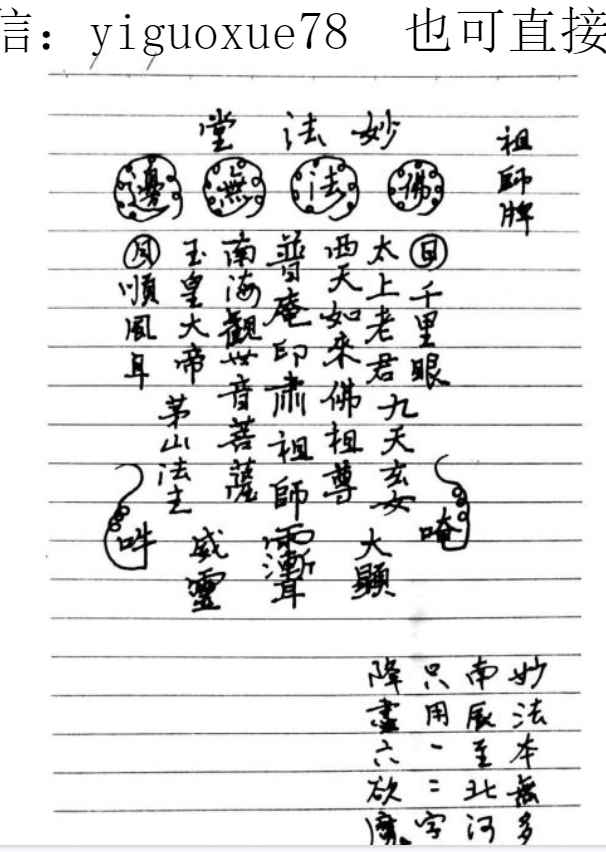 信：yiguoxue78　也可直接
祖師牌
妙法堂
佛法無邊
日千里眼
太上老君
九天玄女
西天如來佛祖尊
普庵印肅祖師
南海觀世音菩薩
玉皇大帝
茅山法主
月順風耳
唵
大顯
威靈
吽
妙法本無多
南辰至北河
只用一二字
降盡六欲魔